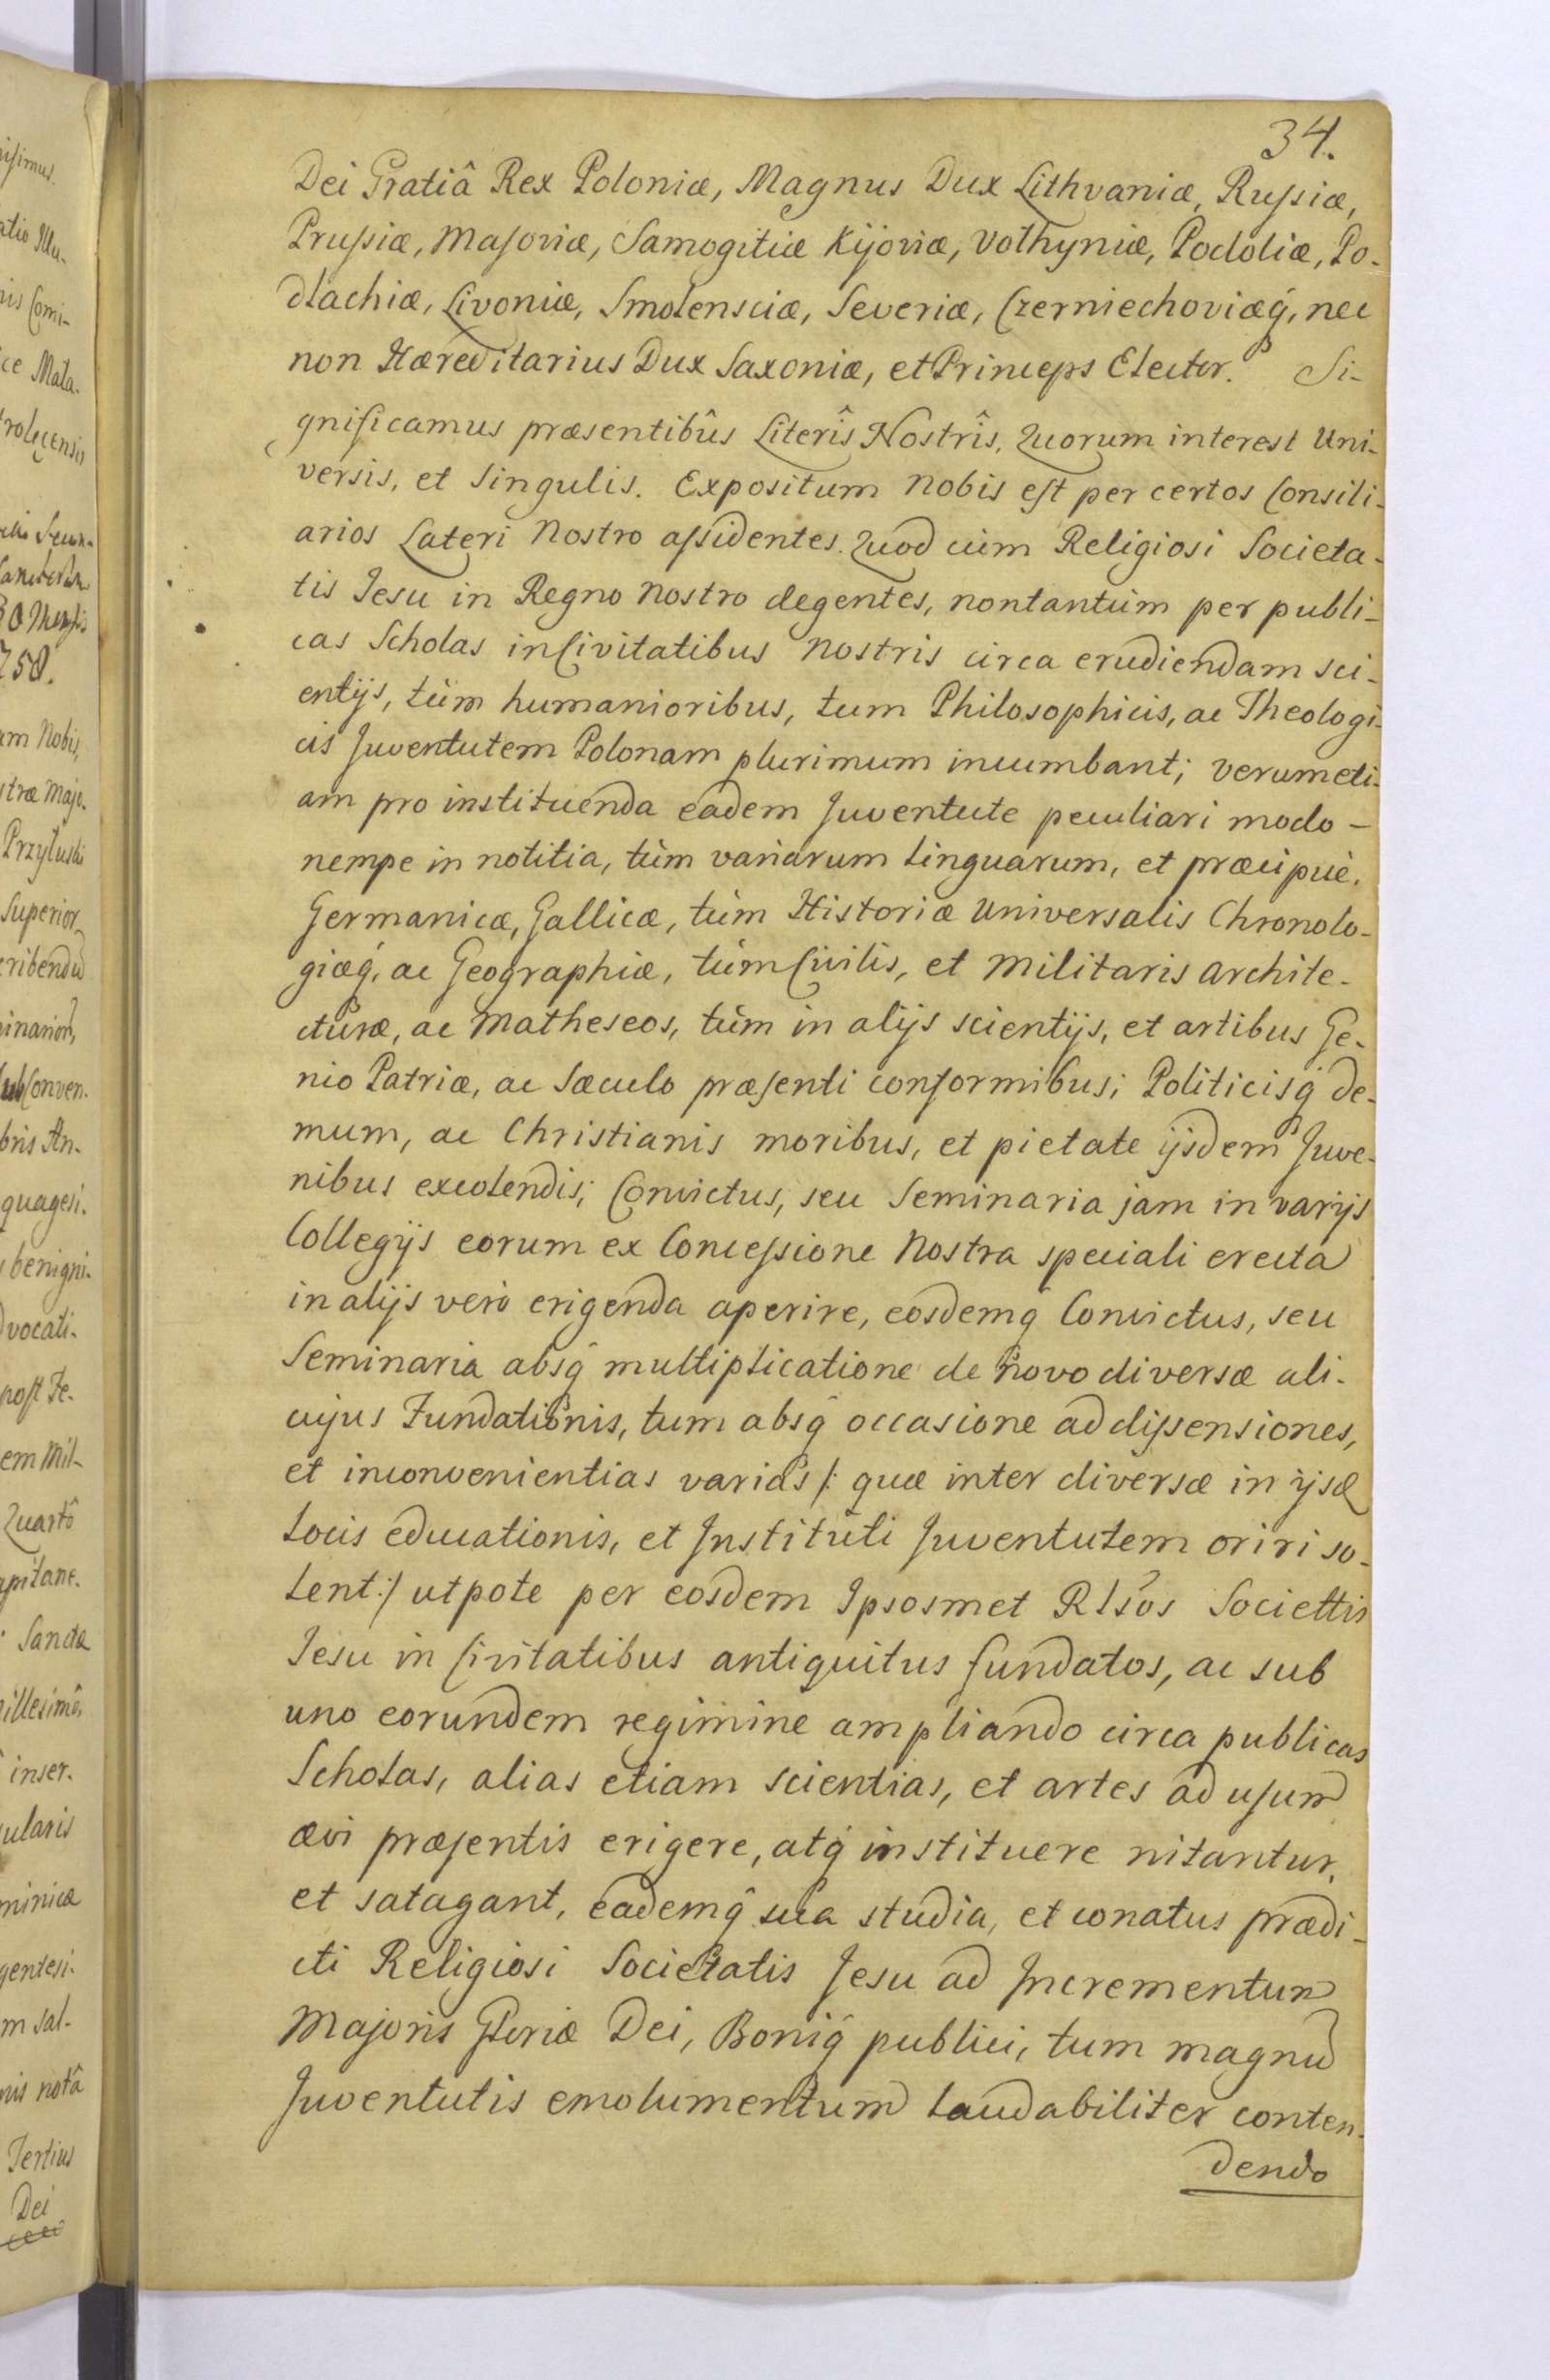 34.
Dei Gratiâ Rex Poloniæ, Magnus Dux Lithvaniæ, Russiæ,
Prussiæ, Masoviæ, Samogitiæ Kijoviæ, Volhyniæ, Podoliæ, Po-
dlachiæ, Livoniæ, Smolensciæ, Severiæ, Czerniechoviæq́, nec
non Hæreditarius Dux Saxoniæ, et Princeps Elector. Si-
gnificamus præsentibûs Literîs Nostrîs, Quorum interest Uni-
versis, et singulis. Expositum Nobis est per certos Consili-
arios Lateri Nostro assidentes. Quod cùm Religiosi Societa-
tis Jesu in Regno Nostro degentes, nontantùm per publi-
cas Scholas in Civitatibus Nostris circa erudiendam sci-
entijs, tùm humanioribus, tum Philosophicis, ac Theologi-
cis Juventutem Polonam plurimum incumbant; verumeti-
am pro instituenda eadem Juventute peculiari modo -
nempe in notitia, tùm variarum Linguarum, et præcipuè,
Germanicæ, Gallicæ, tùm Historiæ Universalis Chronolo-
giæq́, ac Geographiæ, tùm Civilis, et Militaris archite-
cturæ, ac Matheseos, tùm in alijs scientijs, et artibus Ge-
nio Patriæ, ac Sæculo præsenti conformibus; Politicisq́ de-
mum, ac Christianis moribus, et pietate ijsdem Juve-
nibus excolendis; Convictus, seu Seminaria jam in varijs
Collegijs eorum ex Concessione Nostra speciali erecta
in alijs verò erigenda aperire, eosdemq́ Convictus, seu
Seminaria absq́ multiplicatione de novo diversæ ali-
cujus Fundationis, tum absq́ occasione ad dissensiones,
et inconvenientias varias /: quæ inter diversæ in ijsd
Locis educationis, et Instituti Juventutem oriri so-
lent :/ utpote per eosdem Ipsosmet Rlsos Societtis
Jesu in Civitatibus antiquitus fundatos, ac sub
uno eorundem regimine ampliando circa publicas
Scholas, alias etiam scientias, et artes ad usum
ævi præsentis erigere, atq́ instituere nitantur,
et satagant, eademq́ sua studia, et conatus prædi-
cti Religiosi Societatis Jesu ad Incrementum
Majoris Gloriæ Dei, Boniq́ publici, tum magnū
Juventutis emolumentum laudabiliter conten-
dendo